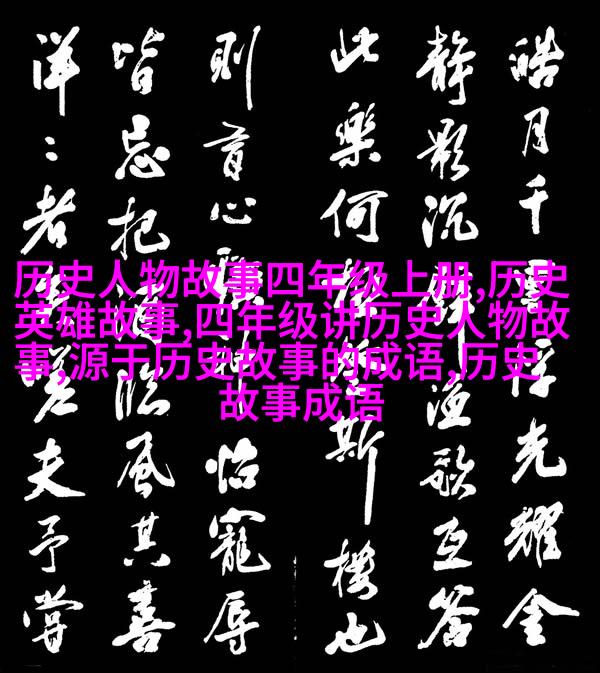 皓月千里浮光耀金
靜影沉漁歌互答
此樂何斯樓也
則有心曠神怡寵辱
皆忘把酒臨風其喜
洋:者矣嗟夫予嘗
历史人物故事四年级上册,历史
英雄故事,四年级讲历史人物故
事,源于历史故事的成语,历史
故事成语